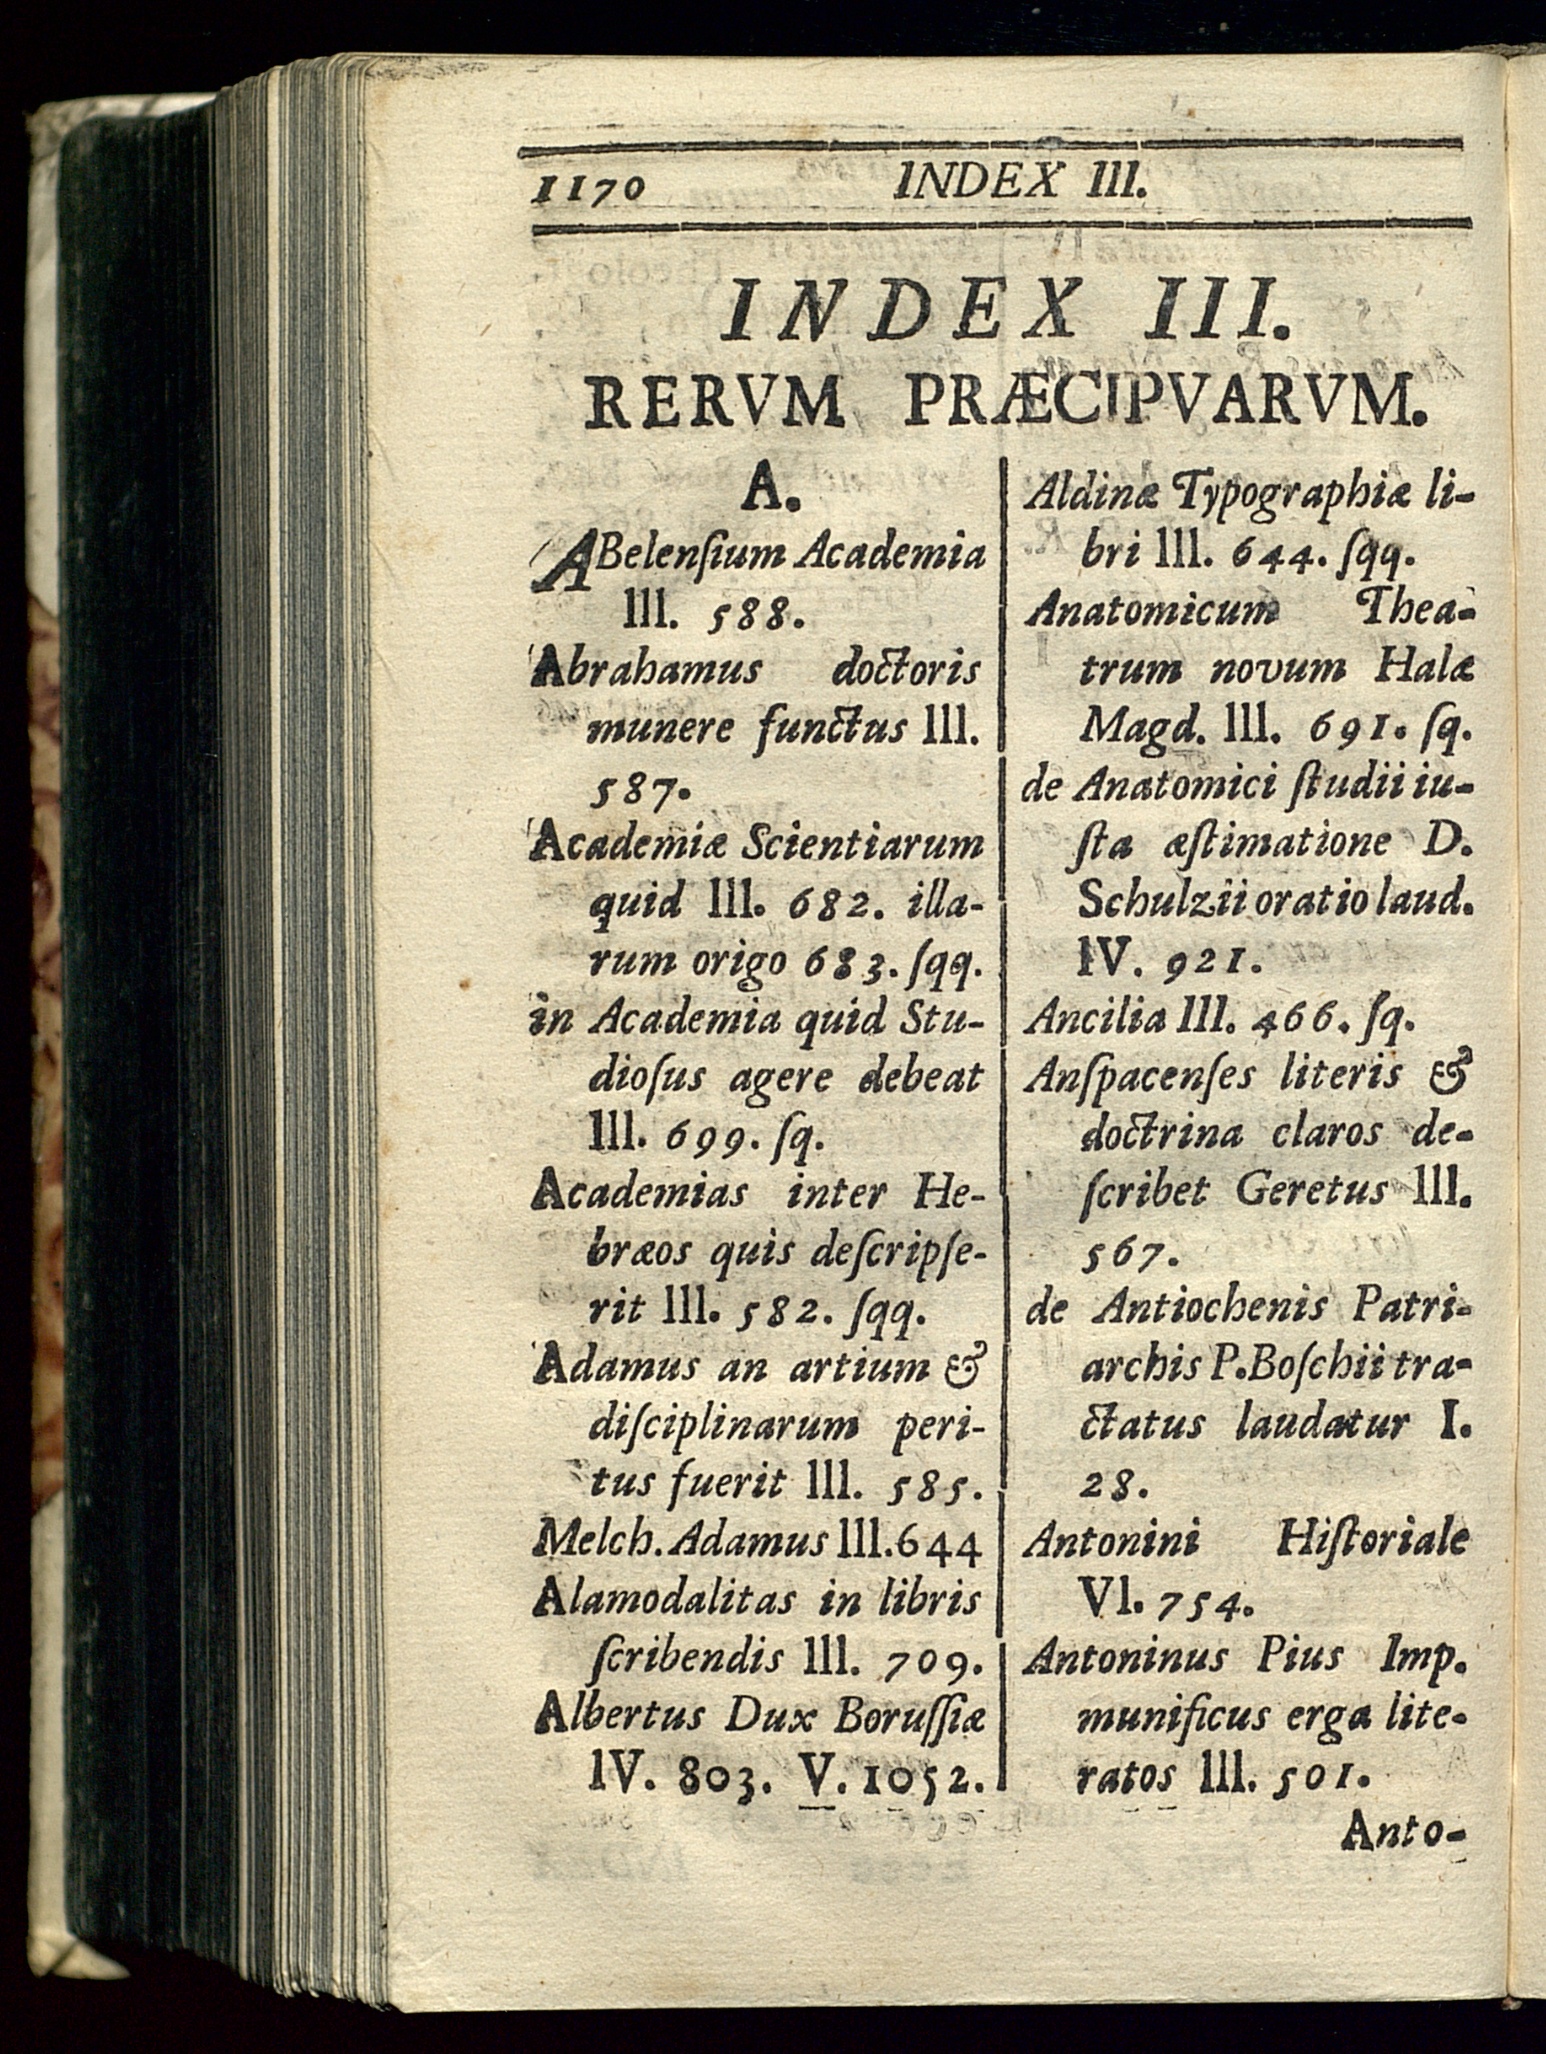 1170 INDEX III.
INDEX III.
RERVM PRÆCIPVARVM.
A.
ABelenſium Academia
III. 588.
Abrahamus doctoris
munere functus III.
587.
Academiæ Scientiarum
quid III. 682. illa-
rum origo 683. ſqq.
in Academia quid Stu-
dioſus agere debeat
III. 699. ſq.
Academias inter He-
bræos quis deſcripſe-
rit III. 582. ſqq.
Adamus an artium &
diſciplinarum peri-
tus fuerit III. 585.
Melch. Adamus III. 644
Alamodalitas in libris
ſcribendis III. 709.
Albertus Dux Boruſſiæ
IV. 803. V. 1052.
Aldinæ Typographiæ li-
bri III. 644. ſqq.
Anatomicum Thea-
trum novum Halæ
Magd. III. 691. ſq.
de Anatomici ſtudii iu-
ſta æſtimatione D.
Schulzii oratio laud.
IV. 921.
Ancilia III. 466. ſq.
Anſpacenſes literis &
doctrina claros de-
ſcribet Geretus III.
567.
de Antiochenis Patri-
archis P. Boſchii tra-
ctatus laudatur I.
28.
Antonini Hiſtoriale
VI. 754.
Antoninus Pius Imp.
munificus erga lite-
ratos III. 501.
Anto-